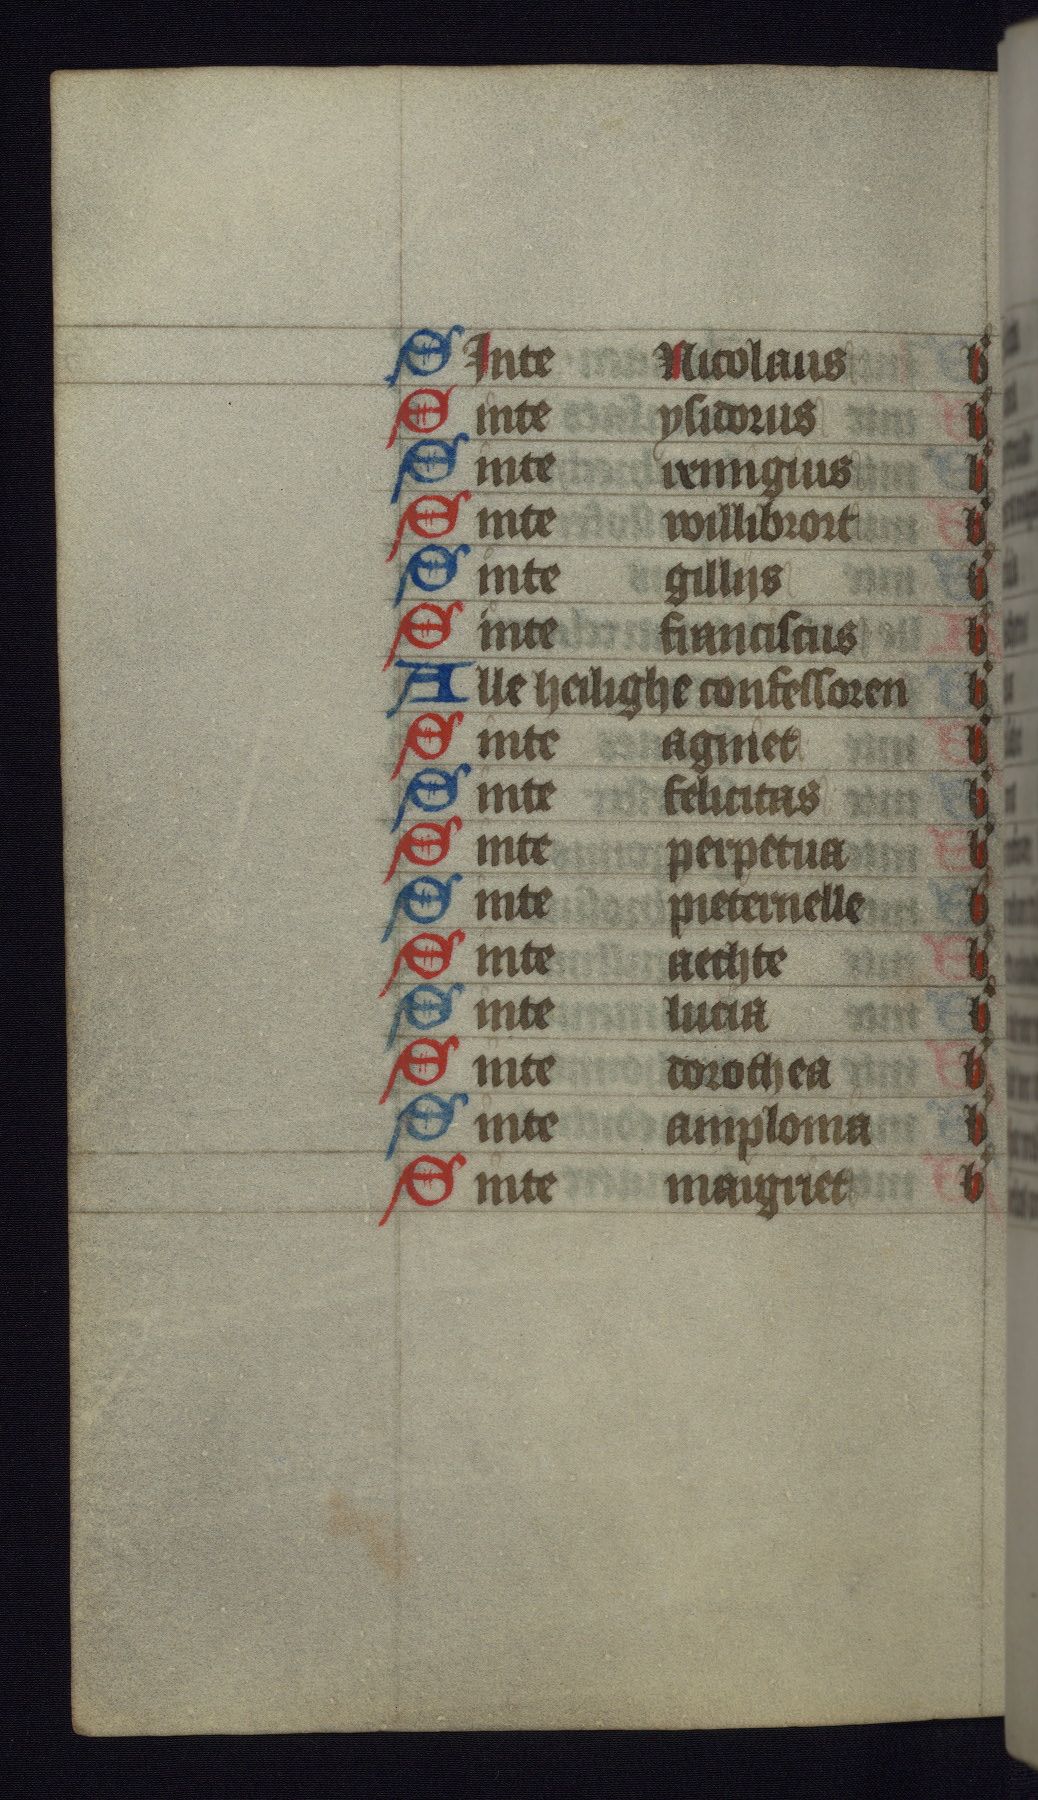 SInte Nicolaus b'
Sinte ysidorus b'
Sinte remigius b'
Sinte willibrort b'
Sinte gillijs b'
Sinte franciscus b'
Alle heilighe confessoren b'
Sinte agniet b'
Sinte felicitas b'
Sinte perpetua b'
Sinte pieternelle b'
Sinte aechte b'
Sinte lucia b'
Sinte dorothea b'
Sinte amplonia b'
Sinte margriet b'